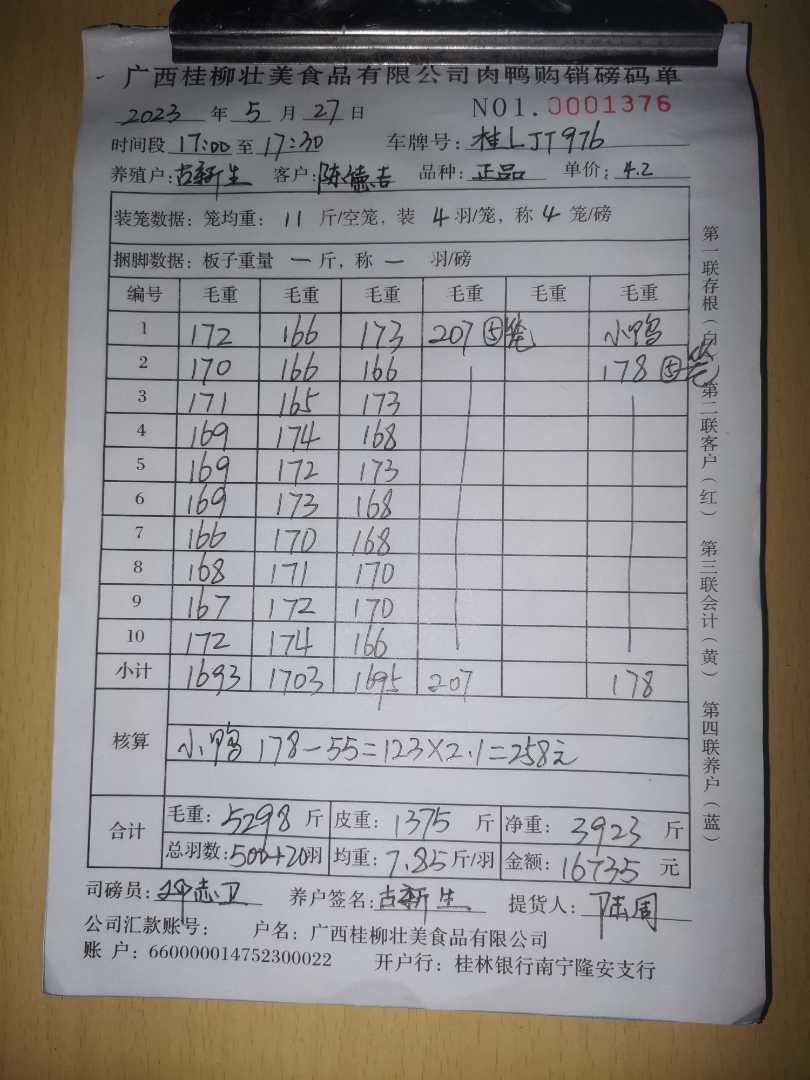 广西桂柳壮美食品有限公司肉鸭购销磅码单
2023 年 5 月 27 日 NO1. 0001376
时间段 17:00 至 17:30 车牌号: 桂LJT976
养殖户: 古新生 客户: 陈德吉 品种: 正品 单价: 4.2
装笼数据: 笼均重: 11 斤/空笼, 装 4 羽/笼, 称 4 笼/磅
捆脚数据: 板子重量 一 斤, 称 一 羽/磅
编号 毛重 毛重 毛重 毛重 毛重 毛重
1 172 166 173 207 ⑤笼 小鸭
2 170 166 166 178 ⑤笼
3 171 165 173
4 169 174 168
5 169 172 173
6 169 173 168
7 166 170 168
8 168 171 170
9 167 172 170
10 172 174 166
小计 1693 1703 1695 207 178
核算 小鸭 178-55=123×2.1=258元
合计 毛重: 5298 斤 皮重: 1375 斤 净重: 3923 斤
总羽数: 500+20羽 均重: 7.85斤/羽 金额: 16735 元
司磅员: 志卫 养户签名: 古新生 提货人: 陆周
公司汇款账号: 户名: 广西桂柳壮美食品有限公司
账 户: 660000014752300022 开户行: 桂林银行南宁隆安支行
第一联存根(白) 第二联客户(红) 第三联会计(黄) 第四联养户(蓝)